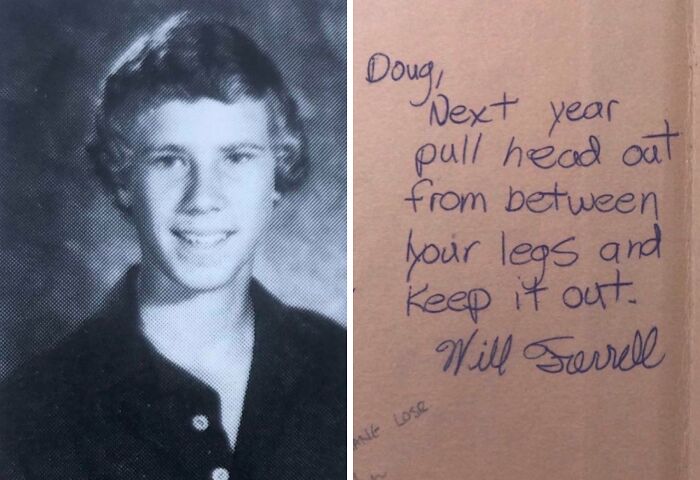 Doug,
Next year
pull head out
from between
your legs and
keep it out.
Will Ferrell
LOSE